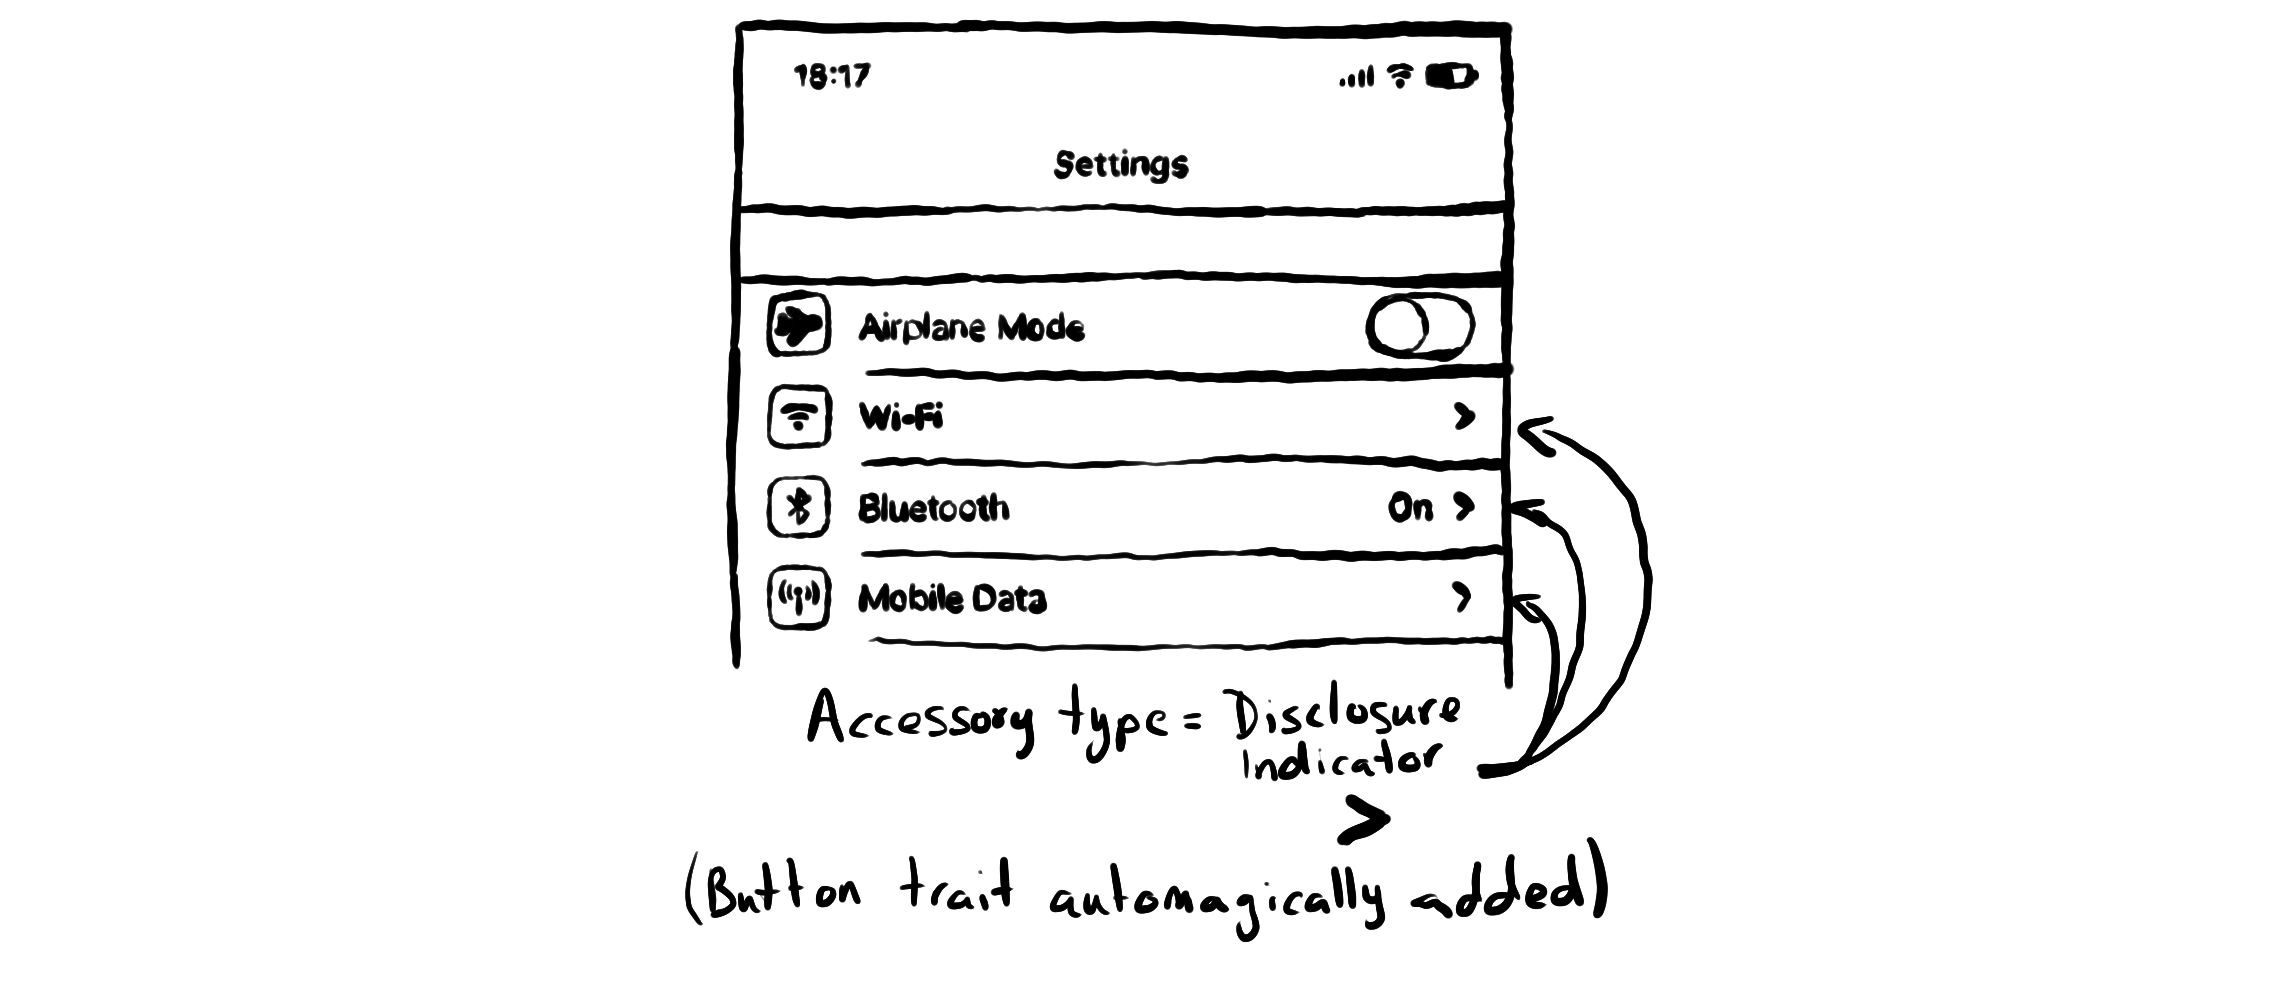 18:17
Settings
Airplane Mode
Wi-Fi
Bluetooth On >
Mobile Data
Accessory type = Disclosure
Indicator
>
(Button trait automagically added)